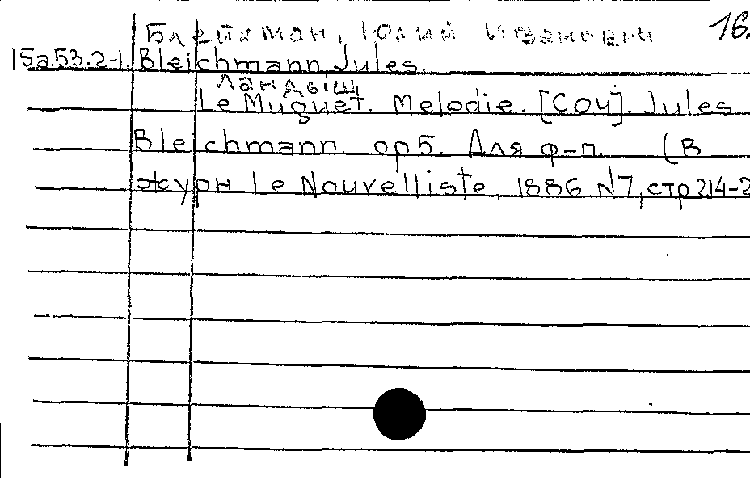 Блейхман, Юлий Иванович 16.
15a53.2-1. Bleichmann, Jules.
Ландыш
Le Muguet. Melodie. [Соч]. Jules
Bleichmann. op5. Для ф-п. (В
журн Le Nouvelliste, 1886 N7, стр 214-2